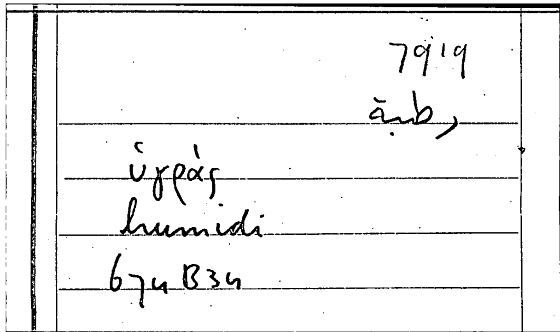 7919
رطبة
ὑγράς
humidi
674 B34